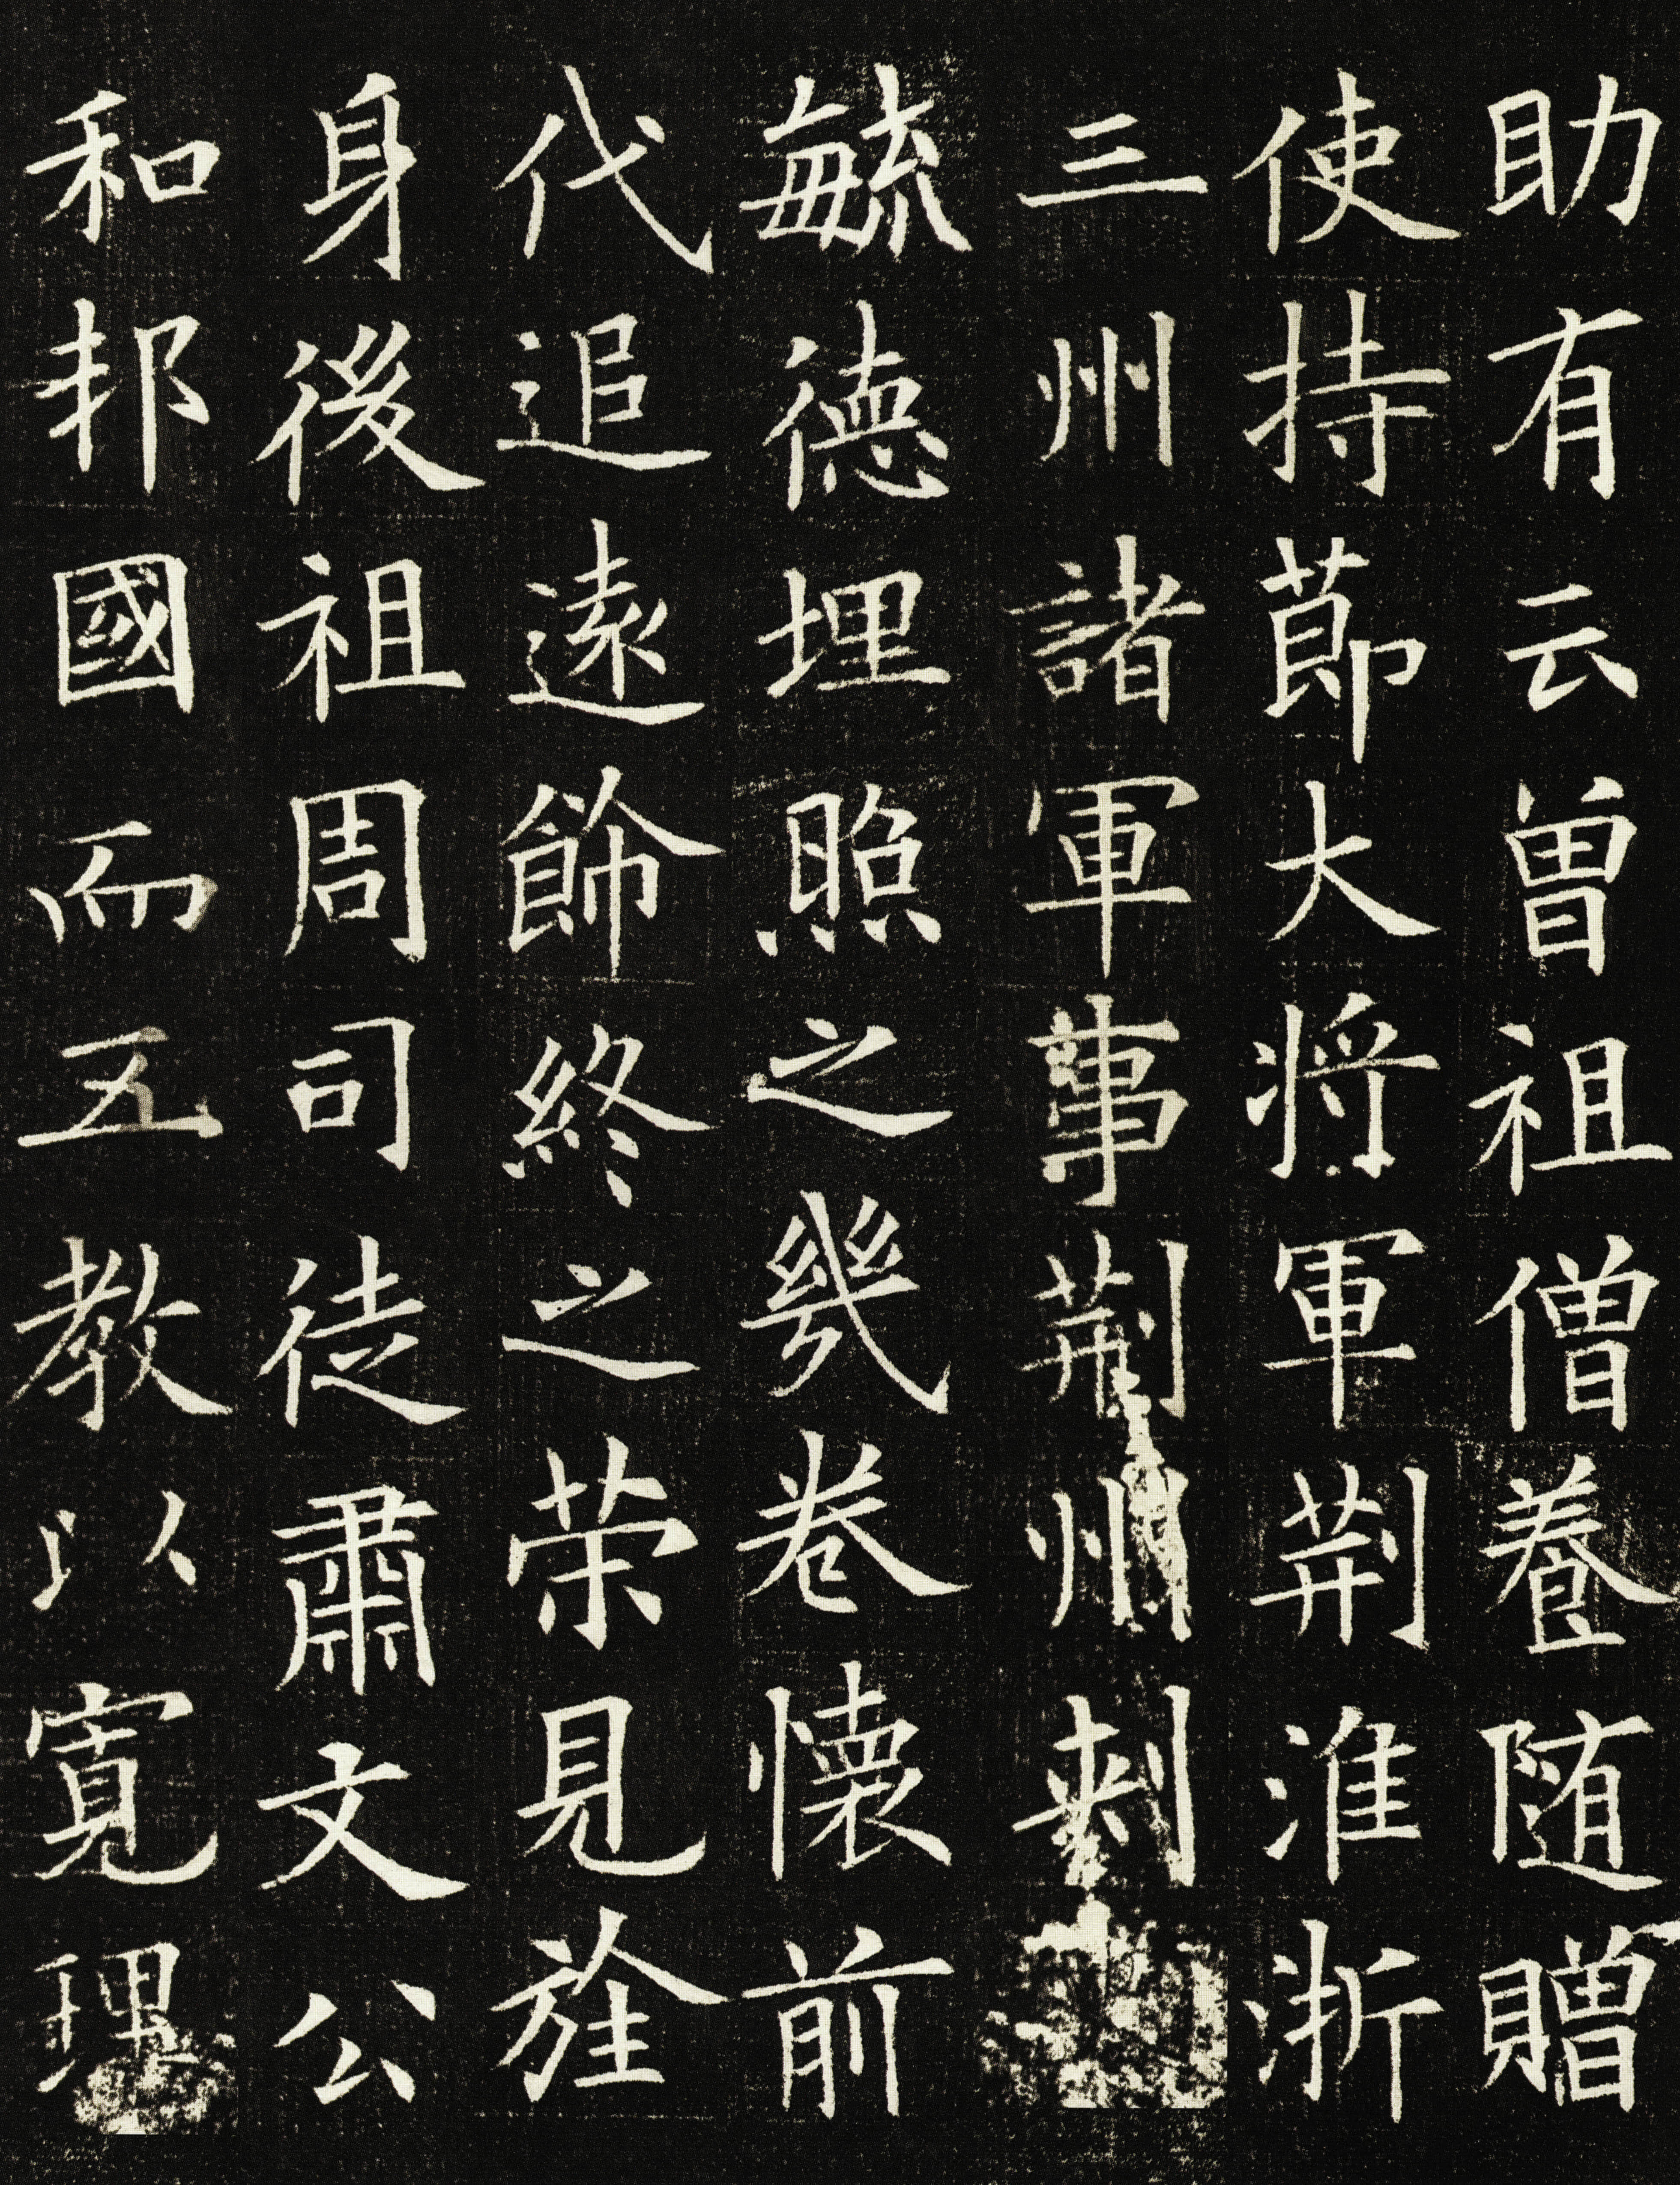 助有云曾祖僧養随贈
使持莭大将軍荆淮淅
三州諸軍事荆州刺
毓德埋照之幾卷懐前
代追遠餙終之荣見旌
身後祖周司徒肅文公
和邦國而五教以寛理